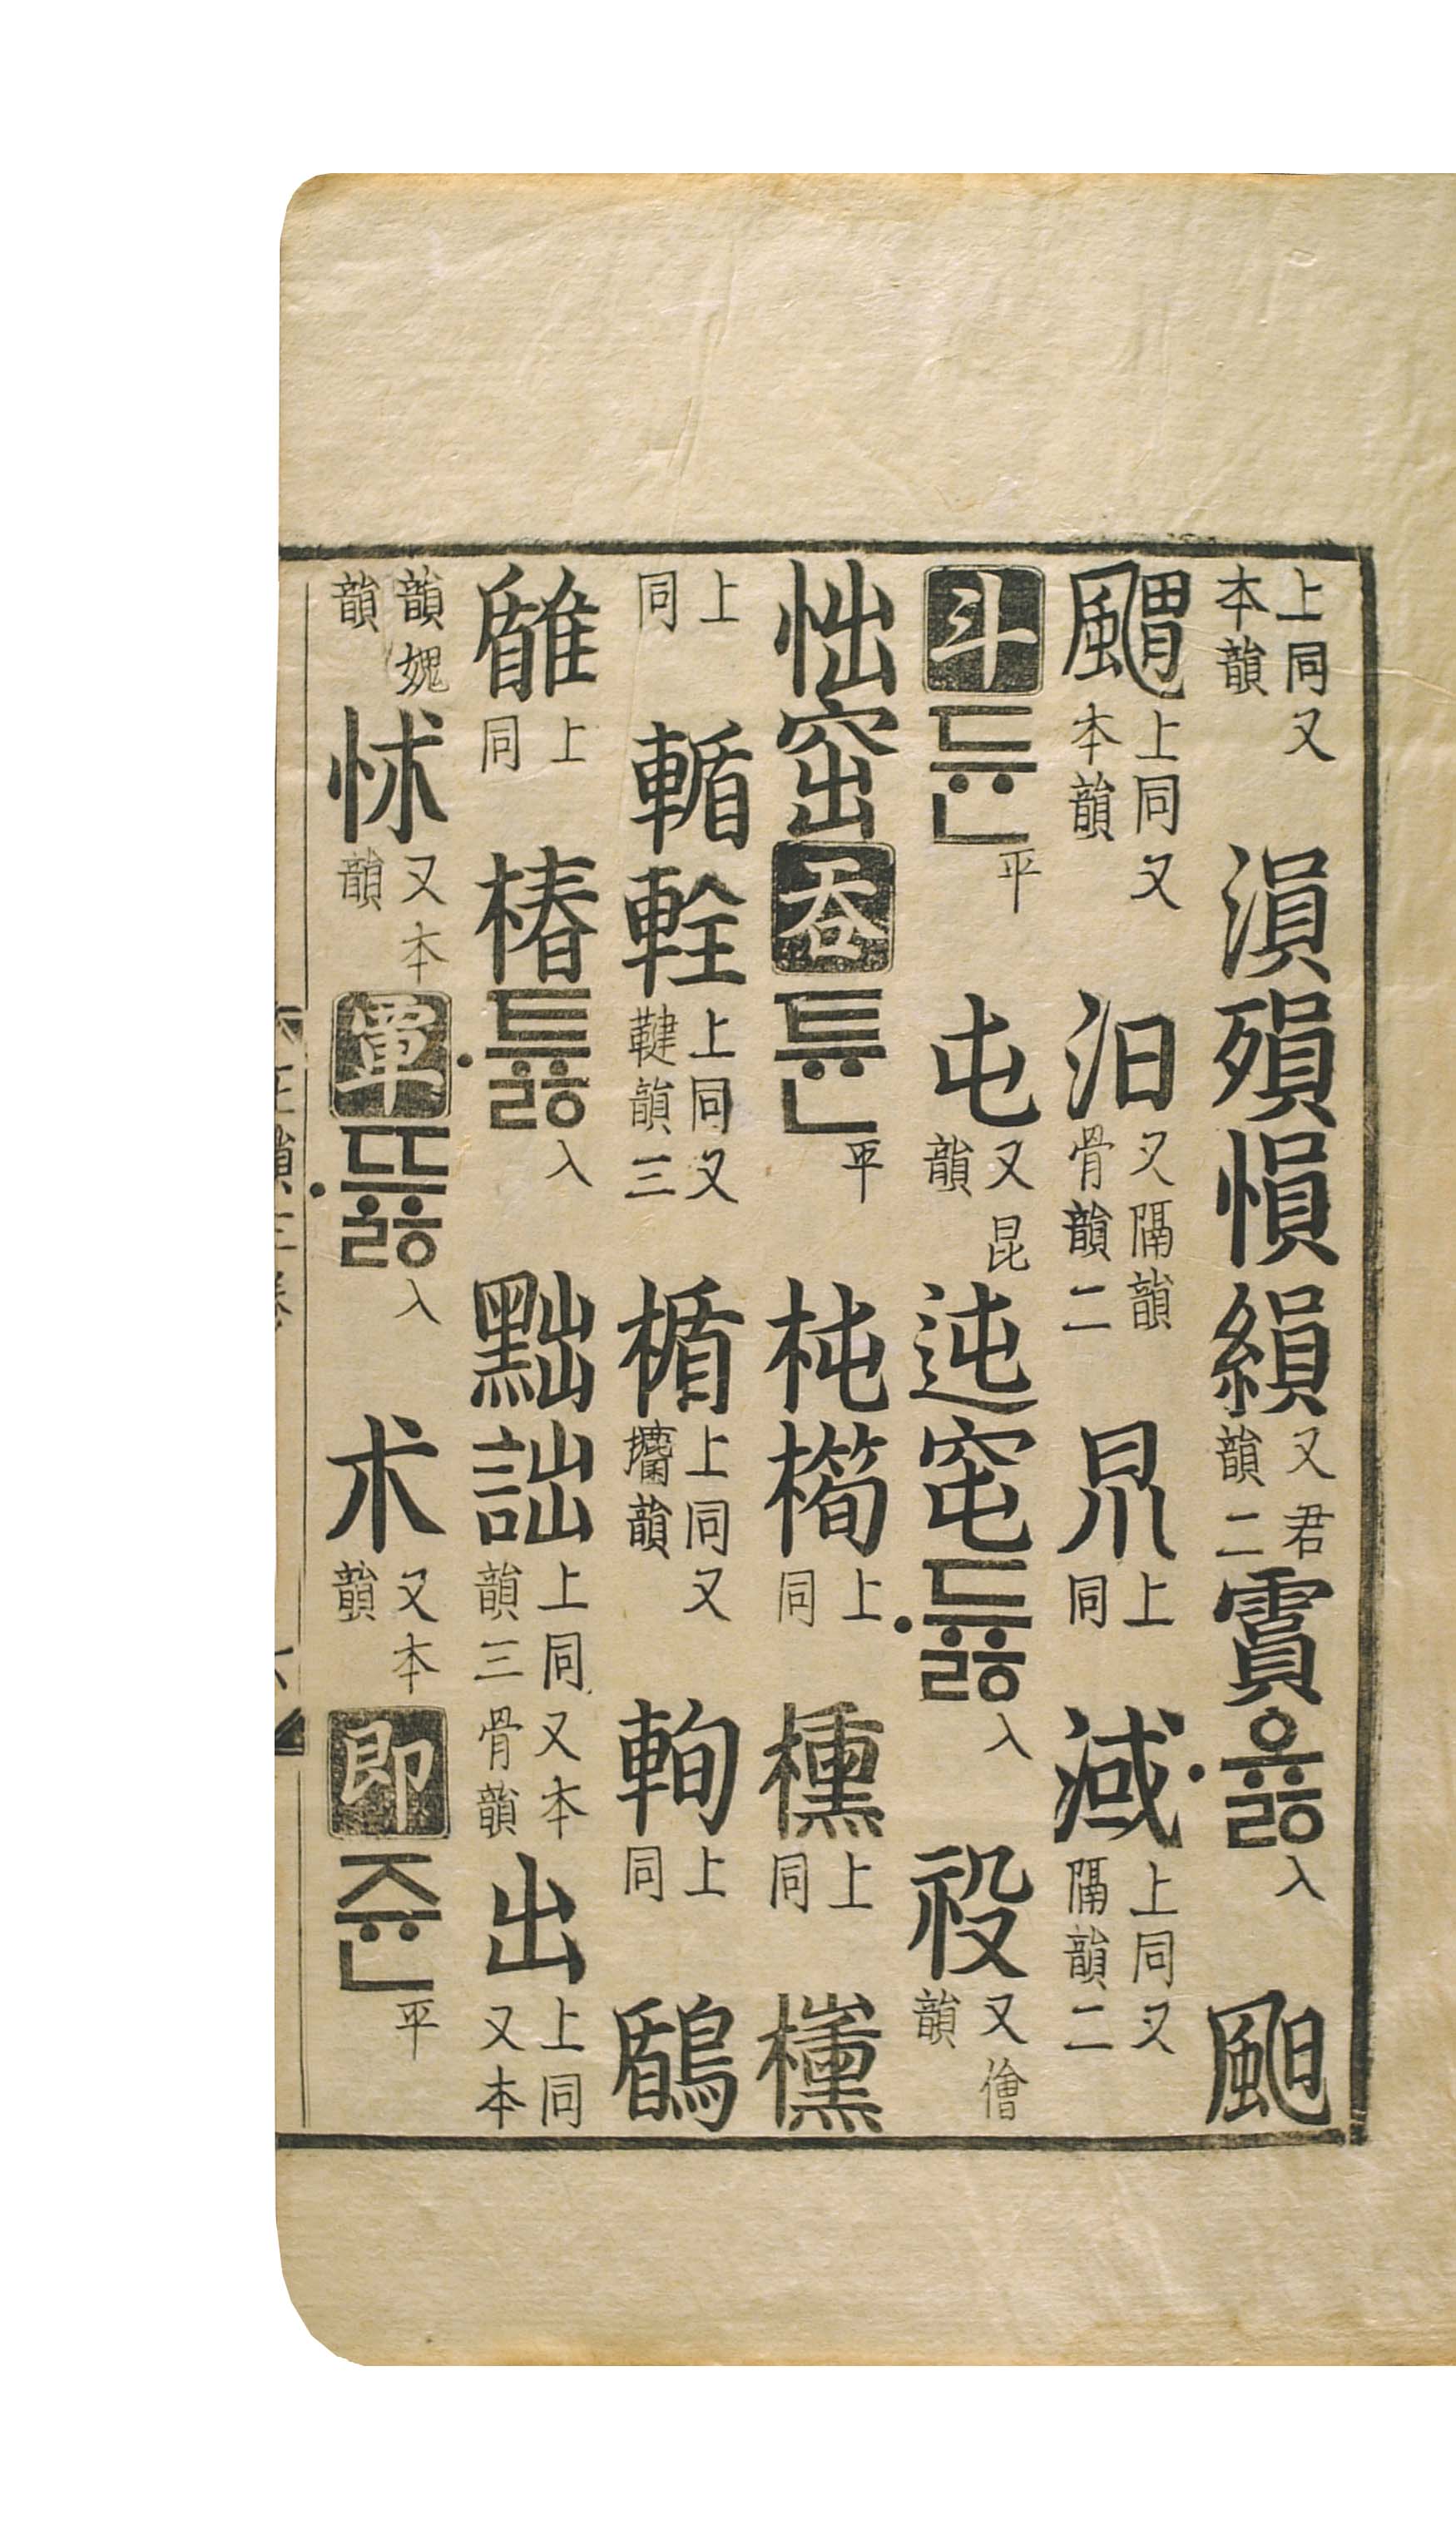 上同又本韻 溳殞愪縜 又君韻二 霣 ·유ᇙ 入 䫻
䬍 上同又本韻 汩 又隔韻骨韻二 上同 淢 上同又隔韻二
斗 듄 平 屯 又昆韻 迍窀 ·듀ᇙ 入 祋 又儈韻
㤕窋 呑 튠 平 杶橁 上同 櫄 上同
上同 輴輇 上同又鞬韻三 楯 上同又攟韻 上同
上同 椿 ·튜ᇙ 入 黜詘 上同又本韻三骨韻 出 上同又本
韻媿韻 怵 又本韻 覃 ·뜌ᇙ 入 朮 又本韻 即 쥰 平